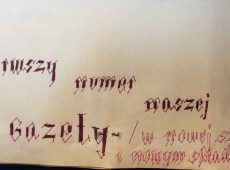 rwszy
numer
naszej
Gazety - /w nowej s
i nowym skład